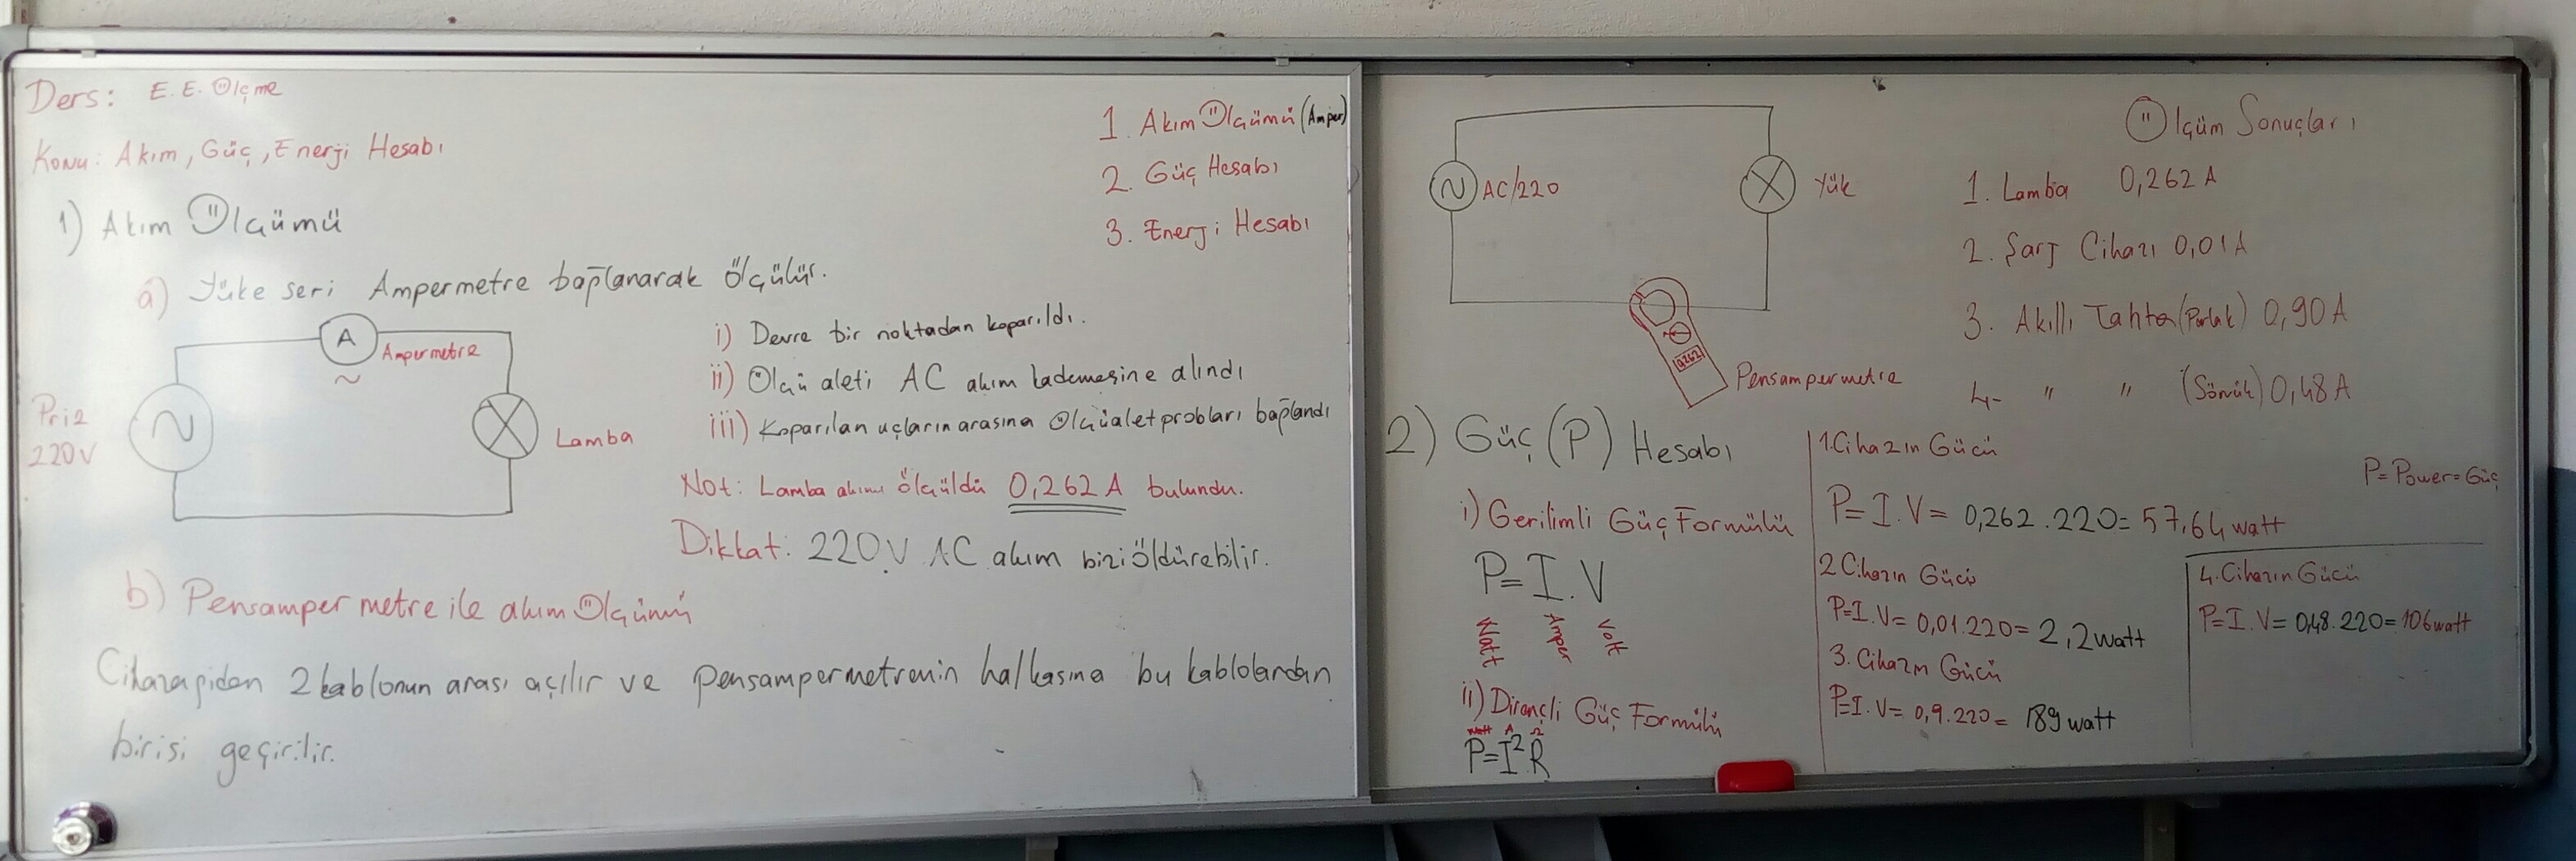 Ders: E.E. Ölçme
Konu: Akım, Güç, Enerji Hesabı
1. Akım Ölçümü (Amper)
2. Güç Hesabı
3. Enerji Hesabı
1) Akım Ölçümü
a) Yüke seri Ampermetre bağlanarak Ölçülür.
A
Ampermetre
~
Priz
220V
Lamba
i) Devre bir noktadan koparıldı.
ii) Ölçü aleti AC akım kademesine alındı
iii) Koparılan uçların arasına Ölçüalet probları bağlandı
Not: Lamba akımı ölçüldü 0,262 A bulundu.
Dikkat: 220V AC akım bizi öldürebilir.
b) Pensampermetre ile akım Ölçümü
Cihaza giden 2 kablonun arası açılır ve pensampermetrenin halkasına bu kablolardan
birisi geçirilir.
AC/220
Yük
0,262
Pensampermetre
Ölçüm Sonuçları
1. Lamba 0,262 A
2. Şarj Cihazı 0,01 A
3. Akıllı Tahta (Parlak) 0,90 A
4- " " (Sönük) 0,48 A
2) Güç (P) Hesabı
i) Gerilimli Güç Formülü
P=I.V
Watt Amper Volt
ii) Dirençli Güç Formülü
watt A Ω
P=I².R
1.Cihazın Gücü
P=Power=Güç
P=I.V= 0,262.220= 57,64 watt
2 Cihazın Gücü
P=I.V= 0,01.220= 2,2 watt
3. Cihazın Gücü
P=I.V= 0,9.220= 189 watt
4. Cihazın Gücü
P=I.V= 0,48.220= 106 watt